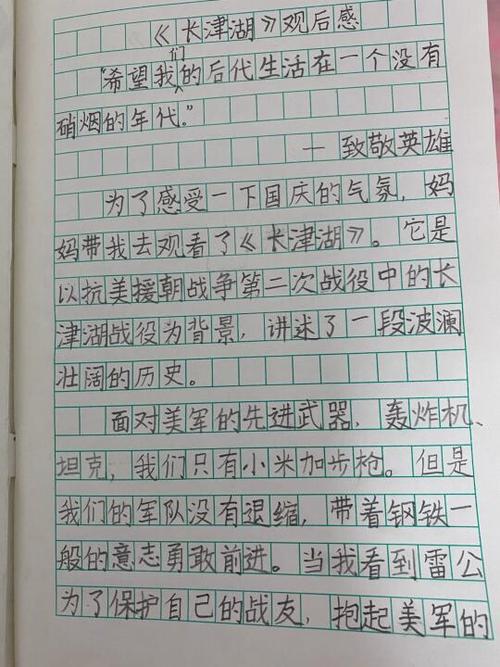 《长津湖》观后感
“希望我们的后代生活在一个没有
硝烟的年代。”
—致敬英雄
为了感受一下国庆的气氛，妈
妈带我去观看了《长津湖》。它是
以抗美援朝战争第二次战役中的长
津湖战役为背景，讲述了一段波澜
壮阔的历史。
面对美军的先进武器，轰炸机、
坦克，我们只有小米加步枪。但是
我们的军队没有退缩，带着钢铁一
般的意志勇敢前进。当我看到雷公
为了保护自己的战友，抱起美军的